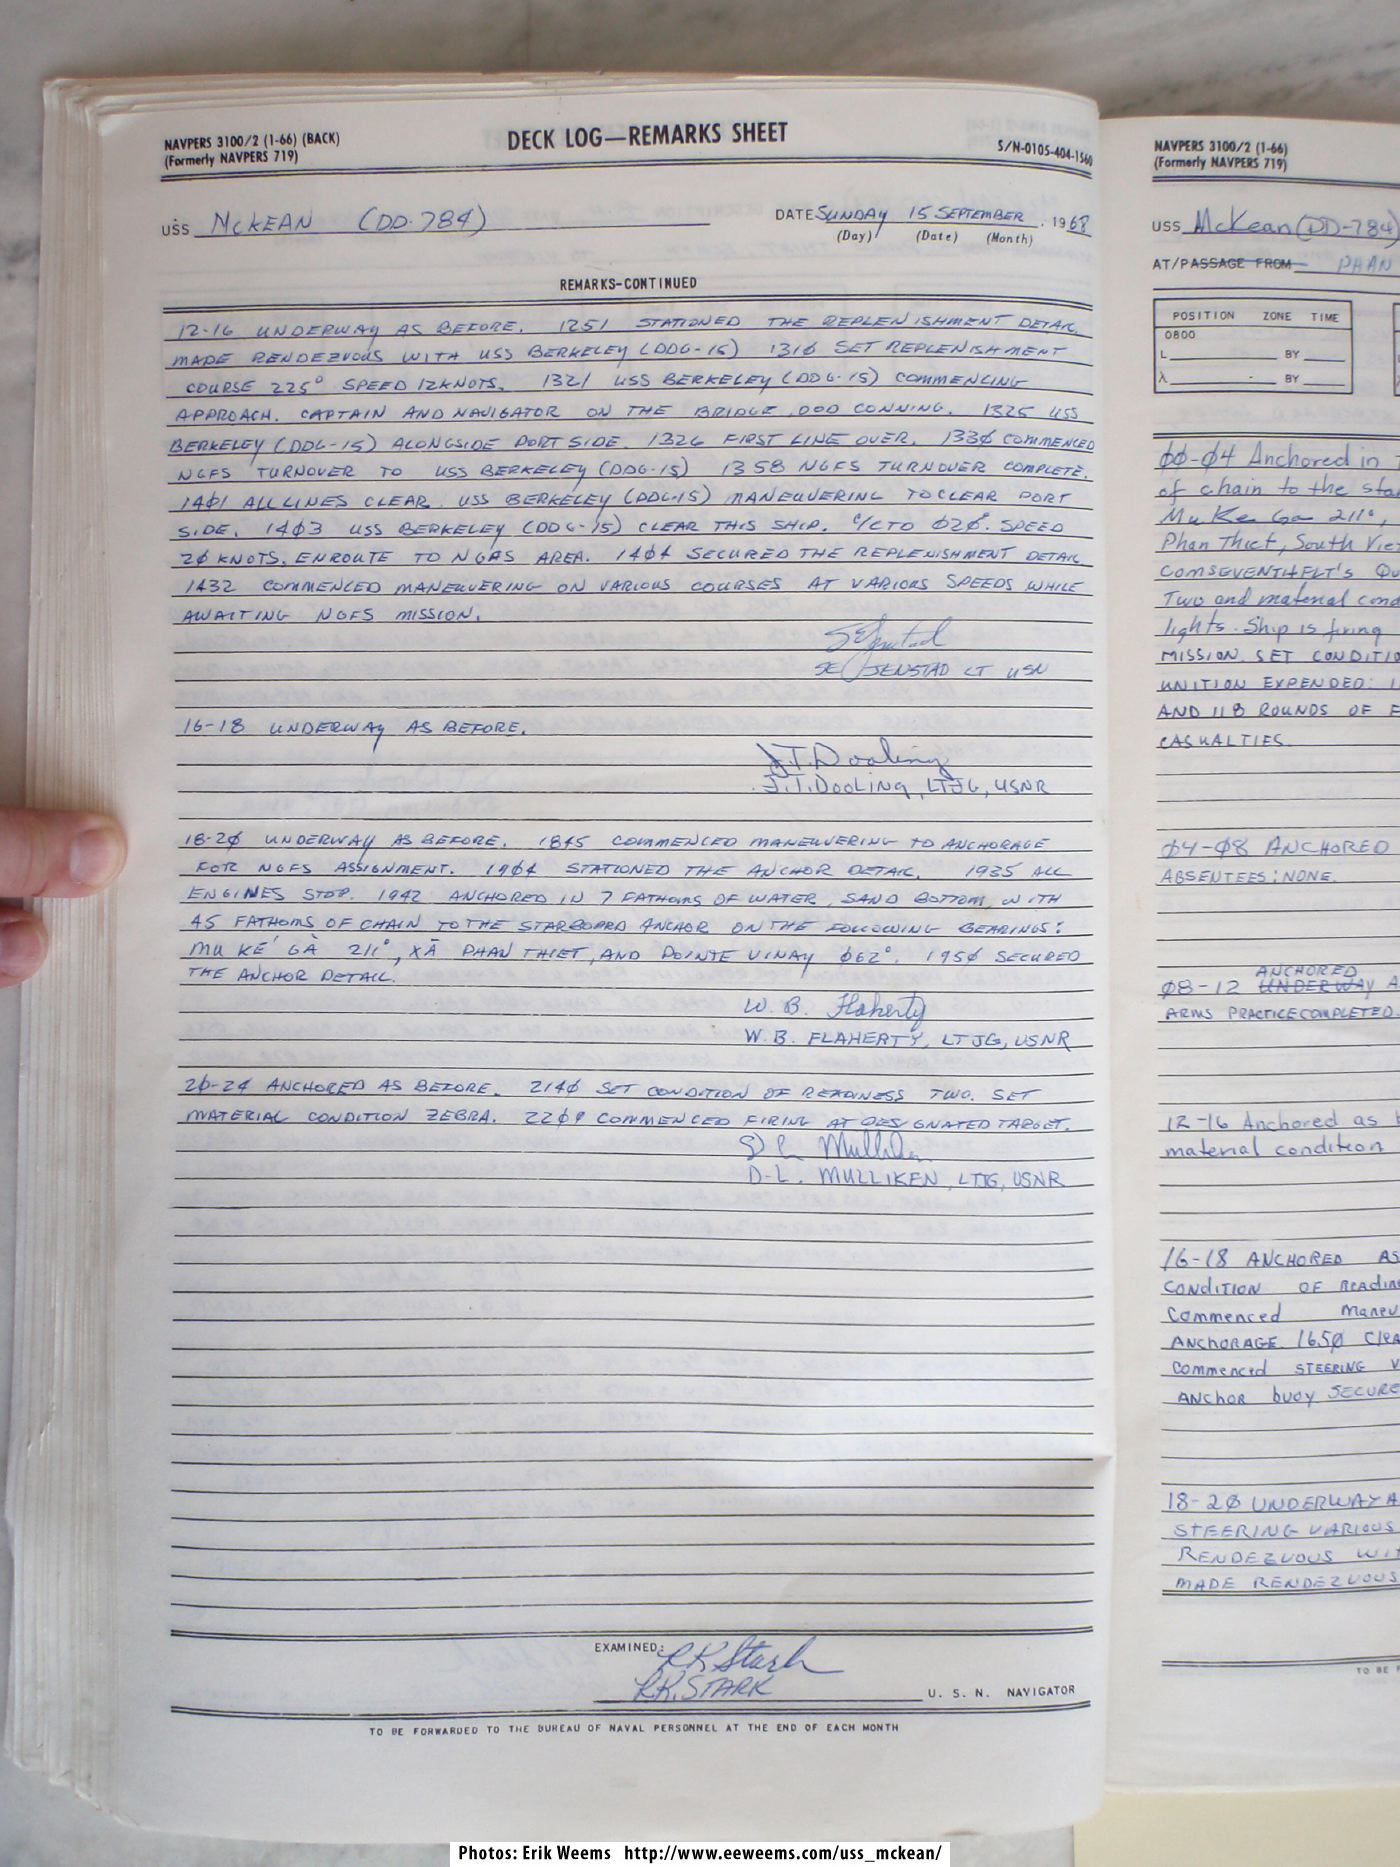 NAVPERS 3100/2 (1-66) (BACK)
(Formerly NAVPERS 719)
DECK LOG—REMARKS SHEET
S/N-0105-404-1560
USS McKEAN (DD-784)
DATE SUNDAY 15 SEPTEMBER, 1968
(Day) (Date) (Month)
REMARKS-CONTINUED
12-16 UNDERWAY AS BEFORE. 1251 STATIONED THE REPLENISHMENT DETAIL
MADE RENDEZVOUS WITH USS BERKELEY (DDG-15) 131Ø SET REPLENISHMENT
COURSE 225° SPEED 12KNOTS. 1321 USS BERKELEY (DDG-15) COMMENCING
APPROACH. CAPTAIN AND NAVIGATOR ON THE BRIDGE, OOD CONNING. 1325 USS
BERKELEY (DDG-15) ALONGSIDE PORT SIDE. 1326 FIRST LINE OVER. 133Ø COMMENCED
NGFS TURNOVER TO USS BERKELEY (DDG-15) 1358 NGFS TURNOVER COMPLETE.
14Ø1 ALL LINES CLEAR. USS BERKELEY (DDG-15) MANEUVERING TO CLEAR PORT
SIDE. 14Ø3 USS BERKELEY (DDG-15) CLEAR THIS SHIP. C/C TO Ø2Ø°. SPEED
2Ø KNOTS. ENROUTE TO NGAS AREA. 14Ø4 SECURED THE REPLENISHMENT DETAIL
1432 COMMENCED MANEUVERING ON VARIOUS COURSES AT VARIORS SPEEDS WHILE
AWAITING NGFS MISSION.
SE Jenstad
SE JENSTAD LT USN
16-18 UNDERWAY AS BEFORE.
J.T. Dooling
J.T. DOOLING, LTJG, USNR
18-2Ø UNDERWAY AS BEFORE. 1845 COMMENCED MANEUVERING TO ANCHORAGE
FOR NGFS ASSIGNMENT. 19Ø4 STATIONED THE ANCHOR DETAIL. 1935 ALL
ENGINES STOP. 1942 ANCHORED IN 7 FATHOMS OF WATER, SAND BOTTOM, WITH
45 FATHOMS OF CHAIN TO THE STARBOARD ANCHOR ON THE FOLLOWING BEARINGS:
MUI KÉ GÀ 211°, XÃ PHAN THIET, AND POINTE VINAY Ø62°. 195Ø SECURED
THE ANCHOR DETAIL.
W. B. Flaherty
W. B. FLAHERTY, LTJG, USNR
2Ø-24 ANCHORED AS BEFORE. 214Ø SET CONDITION OF READINESS TWO. SET
MATERIAL CONDITION ZEBRA. 22Ø9 COMMENCED FIRING AT DESIGNATED TARGET.
D L Mulliken
D.L. MULLIKEN, LTJG, USNR
EXAMINED:
R.R. Stark
R.R. STARK
U. S. N. NAVIGATOR
TO BE FORWARDED TO THE BUREAU OF NAVAL PERSONNEL AT THE END OF EACH MONTH
NAVPERS 3100/2 (1-66)
(Formerly NAVPERS 719)
USS McKean (DD-784)
AT/PASSAGE FROM PHAN
POSITION ZONE TIME
0800
L BY
λ BY
ØØ-Ø4 Anchored in
of chain to the
Mui Ke Ga 211°,
Phan Thiet, South
COMSEVENTHFLT'S
Two and material
lights. Ship is firing
MISSION. SET
UNITION EXPENDED:
AND 118 ROUNDS OF
CASUALTIES.
Ø4-Ø8 ANCHORED
ABSENTEES: NONE.
ANCHORED
Ø8-12 UNDERWAY
ARMS PRACTICE COMPLETED.
12-16 Anchored as
material condition
16-18 ANCHORED AS
CONDITION OF
Commenced
ANCHORAGE. 165Ø
Commenced STEERING
ANCHOR buoy
18-2Ø UNDERWAY
STEERING VARIOUS
RENDEZVOUS
MADE RENDEZVOUS
TO BE
Photos: Erik Weems http://www.eeweems.com/uss_mckean/